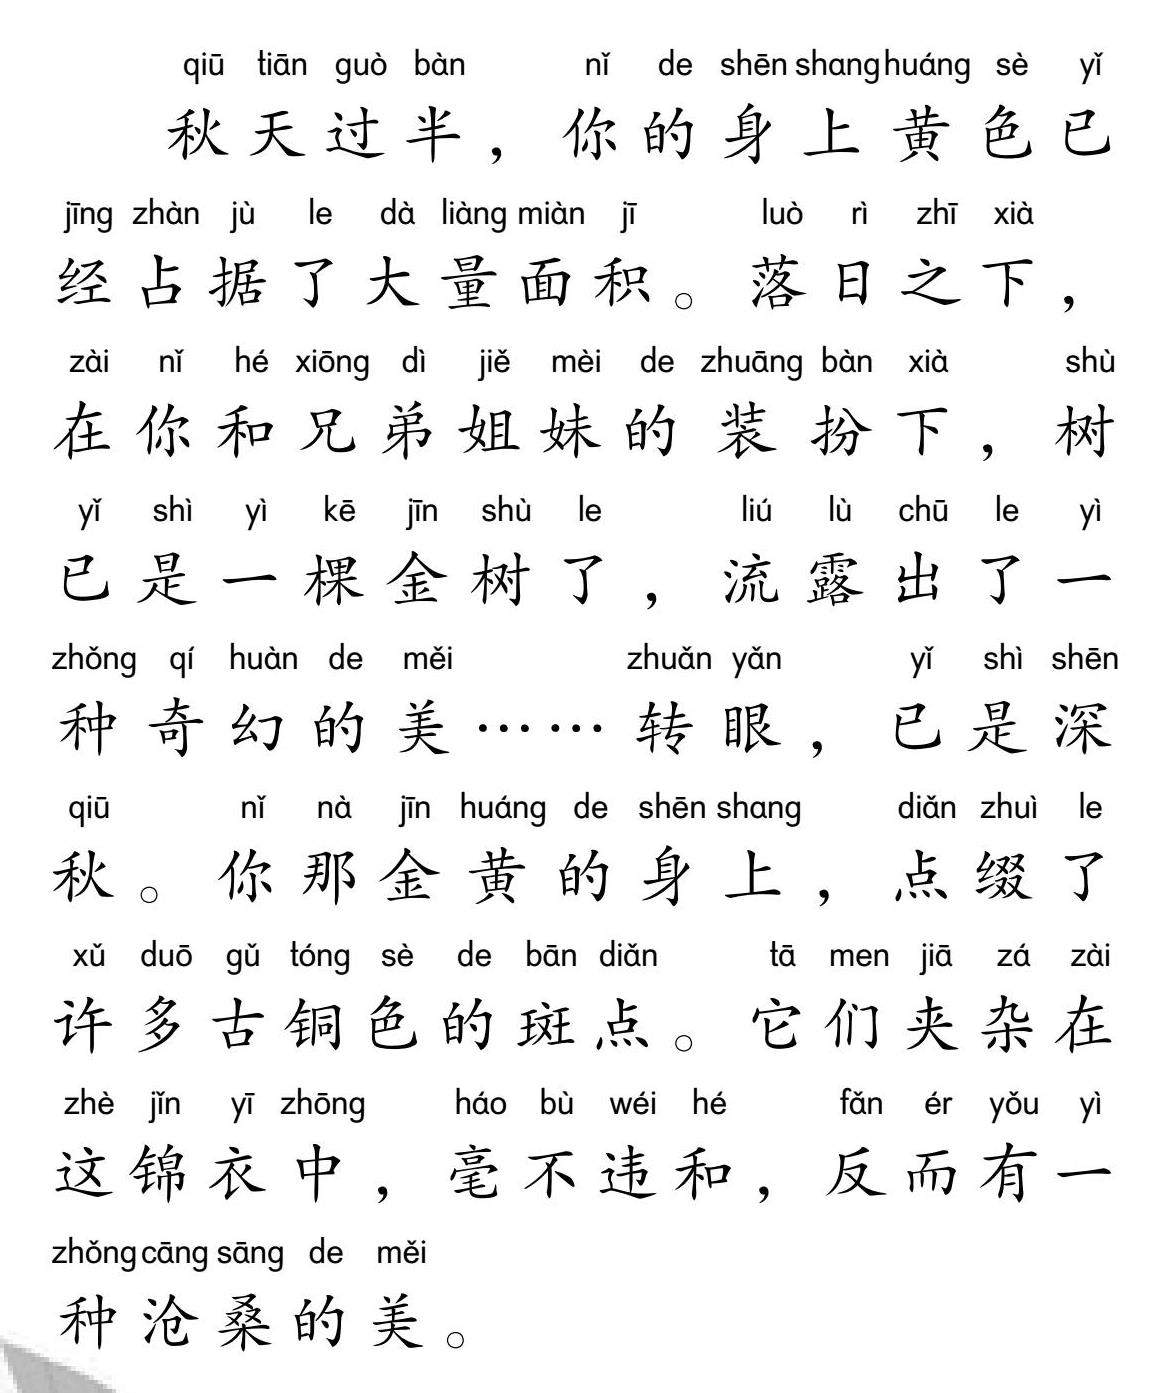 qiū tiān guò bàn nǐ de shēn shang huáng sè yǐ
秋天过半，你的身上黄色已
jīng zhàn jù le dà liàng miàn jī luò rì zhī xià
经占据了大量面积。落日之下，
zài nǐ hé xiōng dì jiě mèi de zhuāng bàn xià shù
在你和兄弟姐妹的装扮下，树
yǐ shì yì kē jīn shù le liú lù chū le yì
已是一棵金树了，流露出了一
zhǒng qí huàn de měi zhuǎn yǎn yǐ shì shēn
种奇幻的美……转眼，已是深
qiū nǐ nà jīn huáng de shēn shang diǎn zhuì le
秋。你那金黄的身上，点缀了
xǔ duō gǔ tóng sè de bān diǎn tā men jiā zá zài
许多古铜色的斑点。它们夹杂在
zhè jǐn yī zhōng háo bù wéi hé fǎn ér yǒu yì
这锦衣中，毫不违和，反而有一
zhǒng cāng sāng de měi
种沧桑的美。